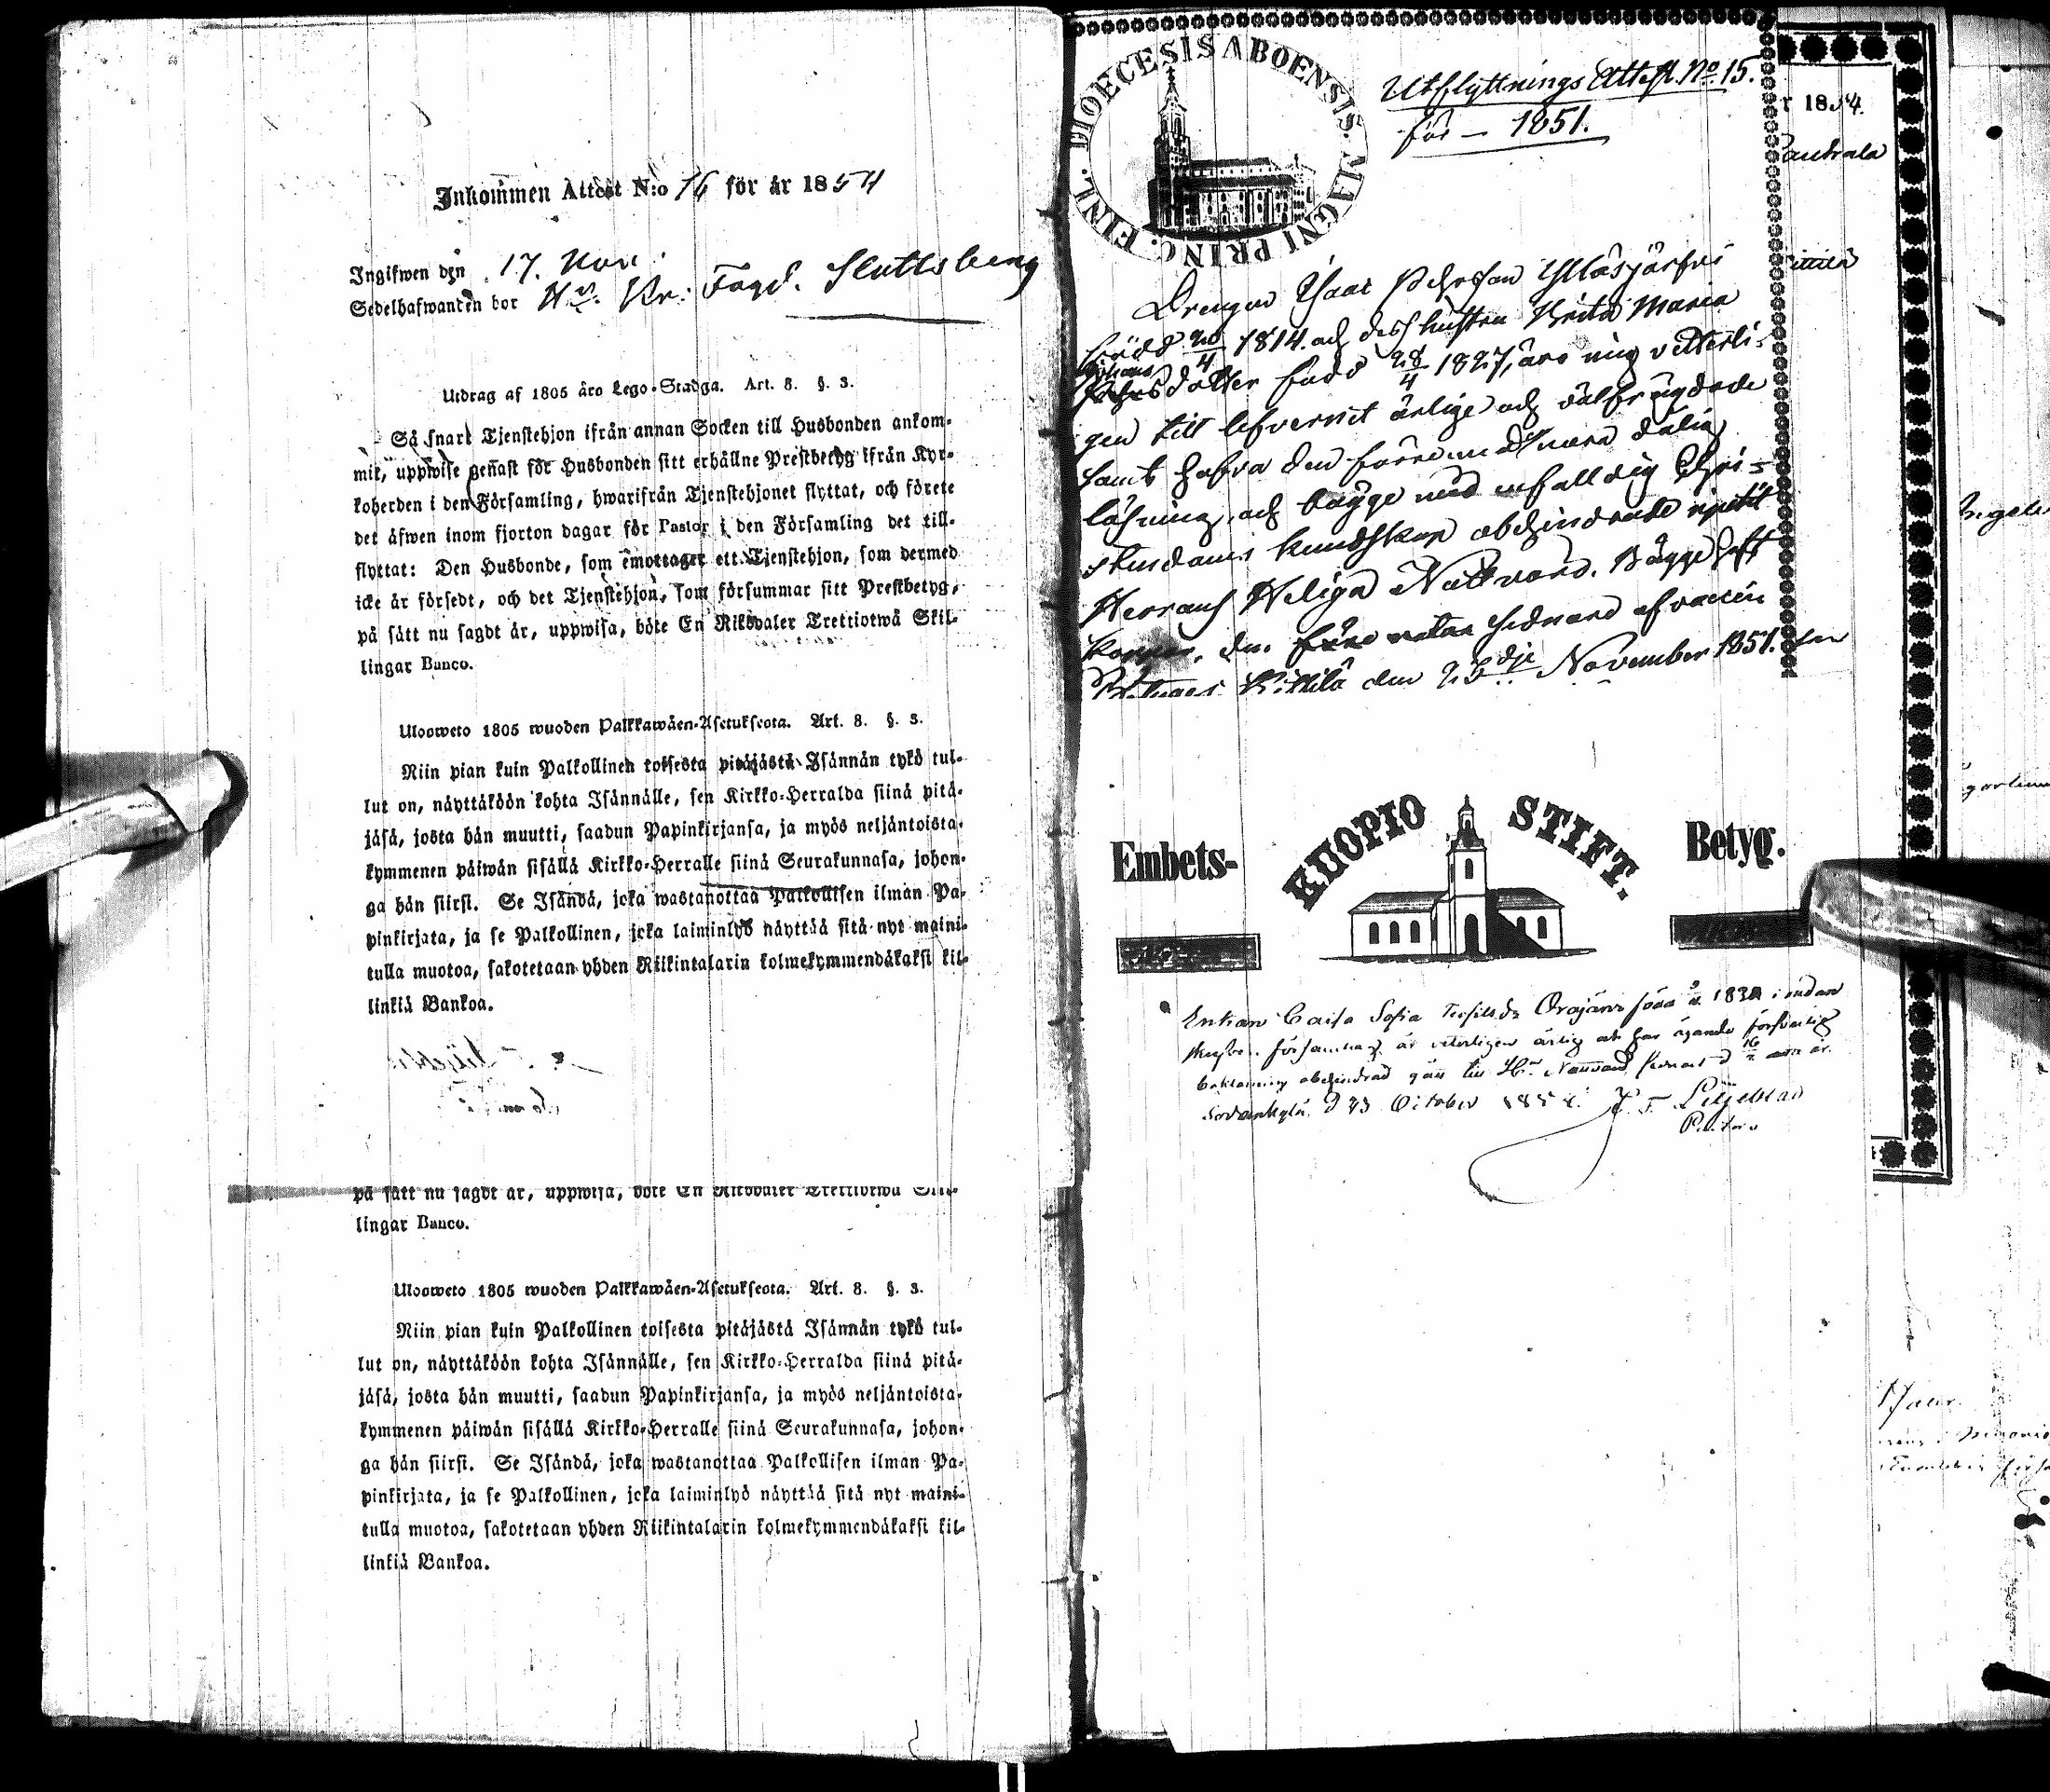 Inkommen Attest N:o 16 för år 1854
Ingifwen den 17. Nov:
Sedelhafwanden bor Hr. Kr: Fogd. Sluttsberg
Utdrag af 1805 års Lego-Stadga. Art. 8. §. 3.
Så snart Tjenstehjon ifrån annan Socken till Husbonden ankom-
mit, uppwise genast för Husbonden sitt erhållne Prestbetyg ifrån Kyr-
koherden i den Församling, hwarifrån Tjenstehjonet flyttat, och förete
det äfwen inom fjorton dagar för Pastor i den Församling det till-
flyttat: Den Husbonde, som emottager ett Tjenstehjon, som dermed
icke är försedt, och det Tjenstehjon, som försummar sitt Prestbetyg,
på sätt nu sagdt är, uppwisa, böte En Riksdaler Trettiotwå Skil-
lingar Banco.
Ulosweto 1805 wuoden Palkkawäen-Asetuksesta. Art. 8. §. 3.
Niin pian kuin Palkollinen toisesta pitäjästä Isännän tykö tul-
lut on, näyttäköön kohta Isännälle, sen Kirkko-Herralda siinä pitä-
jäsä, josta hän muutti, saadun Papinkirjansa, ja myös neljäntoista-
kymmenen päiwän sisällä Kirkko-Herralle siinä Seurakunnasa, johon-
ga hän siirsi. Se Isändä, joka wastanottaa Palkollisen ilman Pa-
pinkirjata, ja se Palkollinen, joka laiminlyö näyttää sitä nyt maini-
tulla muotoa, sakotetaan yhden Riikintalarin kolmekymmendäkaksi kil-
linkiä Bankoa.
på sätt nu sagdt är, uppwisa, böte En Riksdaler Trettiotwå Skil-
lingar Banco.
Ulosweto 1805 wuoden Palkkawäen-Asetuksesta. Art. 8. §. 3.
Niin pian kuin Palkollinen toisesta pitäjästä Isännän tykö tul-
lut on, näyttäköön kohta Isännälle, sen Kirkko-Herralda siinä pitä-
jäsä, josta hän muutti, saadun Papinkirjansa, ja myös neljäntoista-
kymmenen päiwän sisällä Kirkko-Herralle siinä Seurakunnasa, johon-
ga hän siirsi. Se Isändä, joka wastanottaa Palkollisen ilman Pa-
pinkirjata, ja se Palkollinen, joka laiminlyö näyttää sitä nyt maini-
tulla muotoa, sakotetaan yhden Riikintalarin kolmekymmendäkaksi kil-
linkiä Bankoa.
DIOECESIS ABOENSIS. MAGNI PRINC. FINL.
Utflyttnings Attest. No. 15.
för – 1851.
Drengen Isaac Pehrsson Ylläsjärfvi
född 20/4 1814. och dess hustru Brita Maria
Johans
dotter född 28/4 1827, äro mig vetterli-
gen till lefvernet ärlige och välfrägdade
samt hafva den förre nära dålig
läsning, och bägge med enfalldig Chri-
stendoms kundskap obehindrade njutit
Herrans Heliga Nattvard. Bägge haft
koppor, den
Kittilä den 23dje November 1851.
r 1854.
Embets-
KUOPIO STIFT.
Betyg.
Enkan Caisa Sofia Teofilsdr Orajärvi född 1830 i endan
församling är veterligen ärlig och har ägande försvarlig
obehindrad gått till Hr. Nattvard senast d 16
Sodankylä d 23 October 1854. J. F. Liljeblad
Pastor